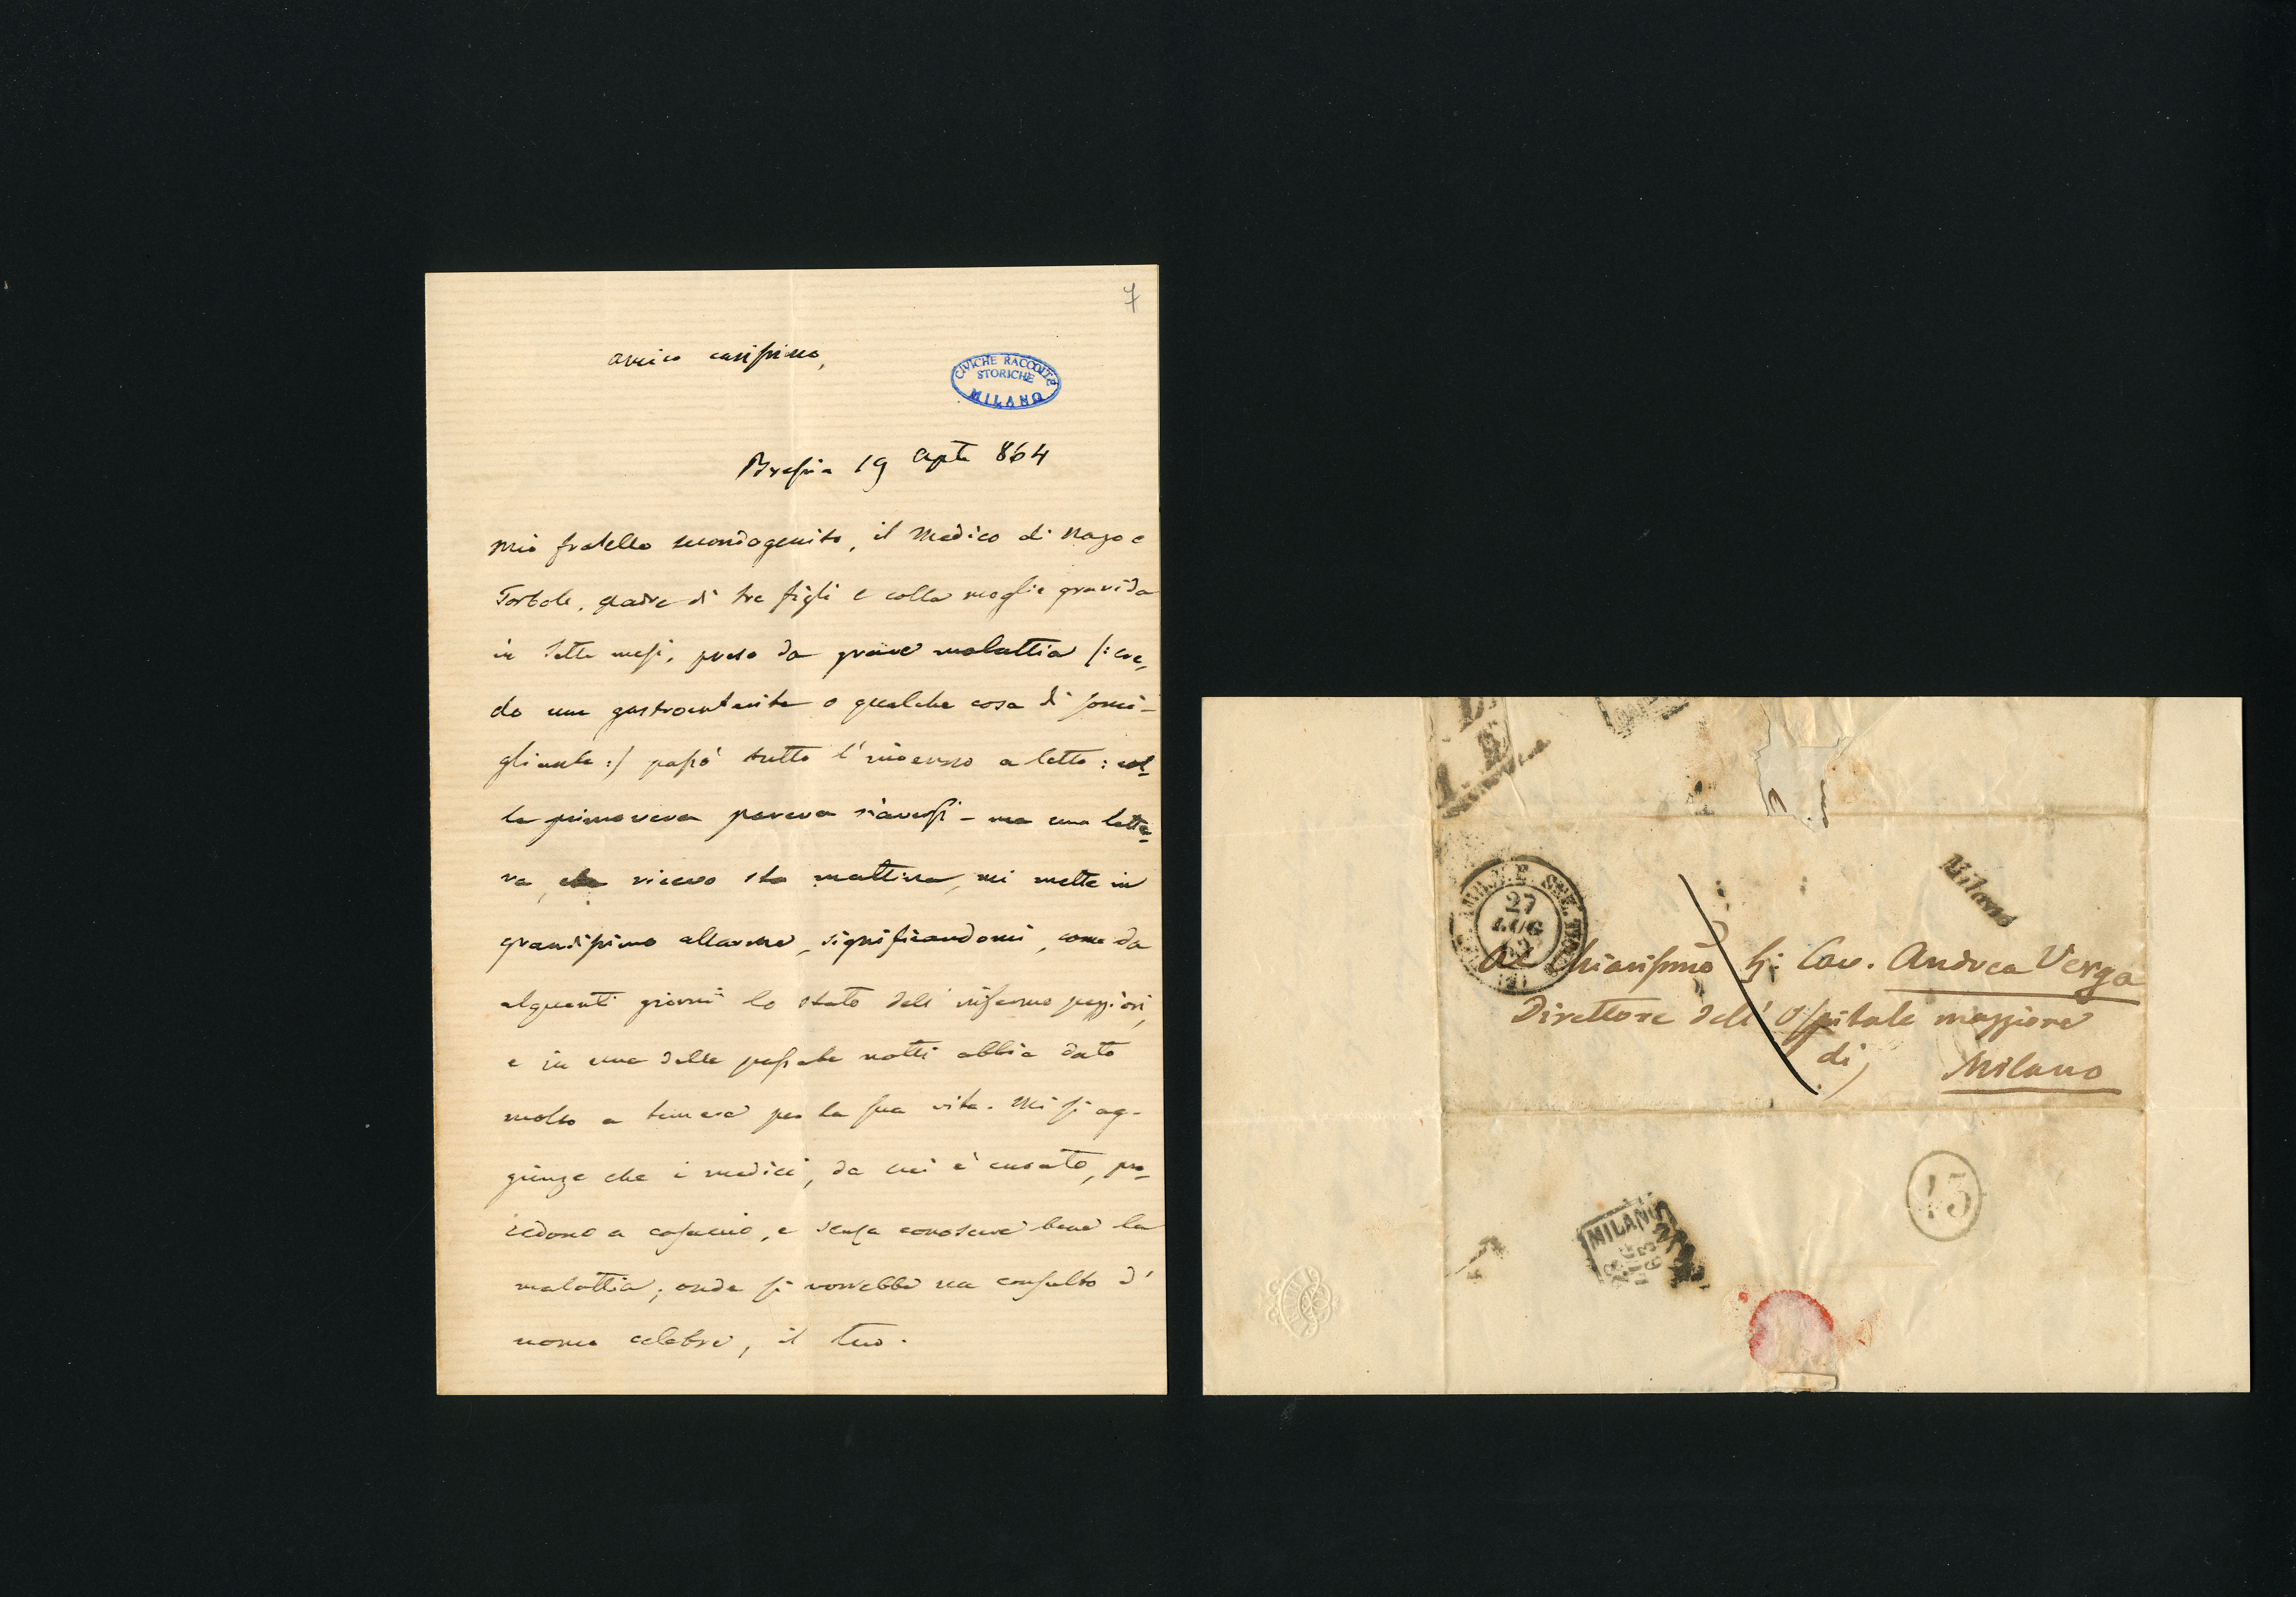 7
amico carissimo,
CIVICHE RACCOLTE
STORICHE
MILANO
Brescia 19 Aple 864
Mio fratello secondogenito, il Medico di Nago e
Torbole, padre di tre figli e colla moglie gravida
in sette mesi, preso da grave malattia /: cre,
do una gastroenterite o qualche cosa di somi-
gliante :/ passò tutto l'inverno a letto: col-
la primavera pareva riaversi - ma una lette-
ra, che ricevo sta mattina, mi mette in
grandissimo allarme, significandomi, come da
alquanti giorni lo stato dell'infermo peggiori,
e in una delle passate notti abbia dato
molto a temere per la sua vita. Mi si ag-
giunge che i medici, da cui è curato, pro-
cedono a casaccio, e senza conoscere bene la
malattia; onde si vorrebbe un consulto d'
uomo celebre, il tuo.
Milano
27
LUG
Al Chiarissimo Sig: Cav. Andrea Verga
Direttore dell'Ospitale maggiore
di
Milano
43
MILANO
28
LUG
63